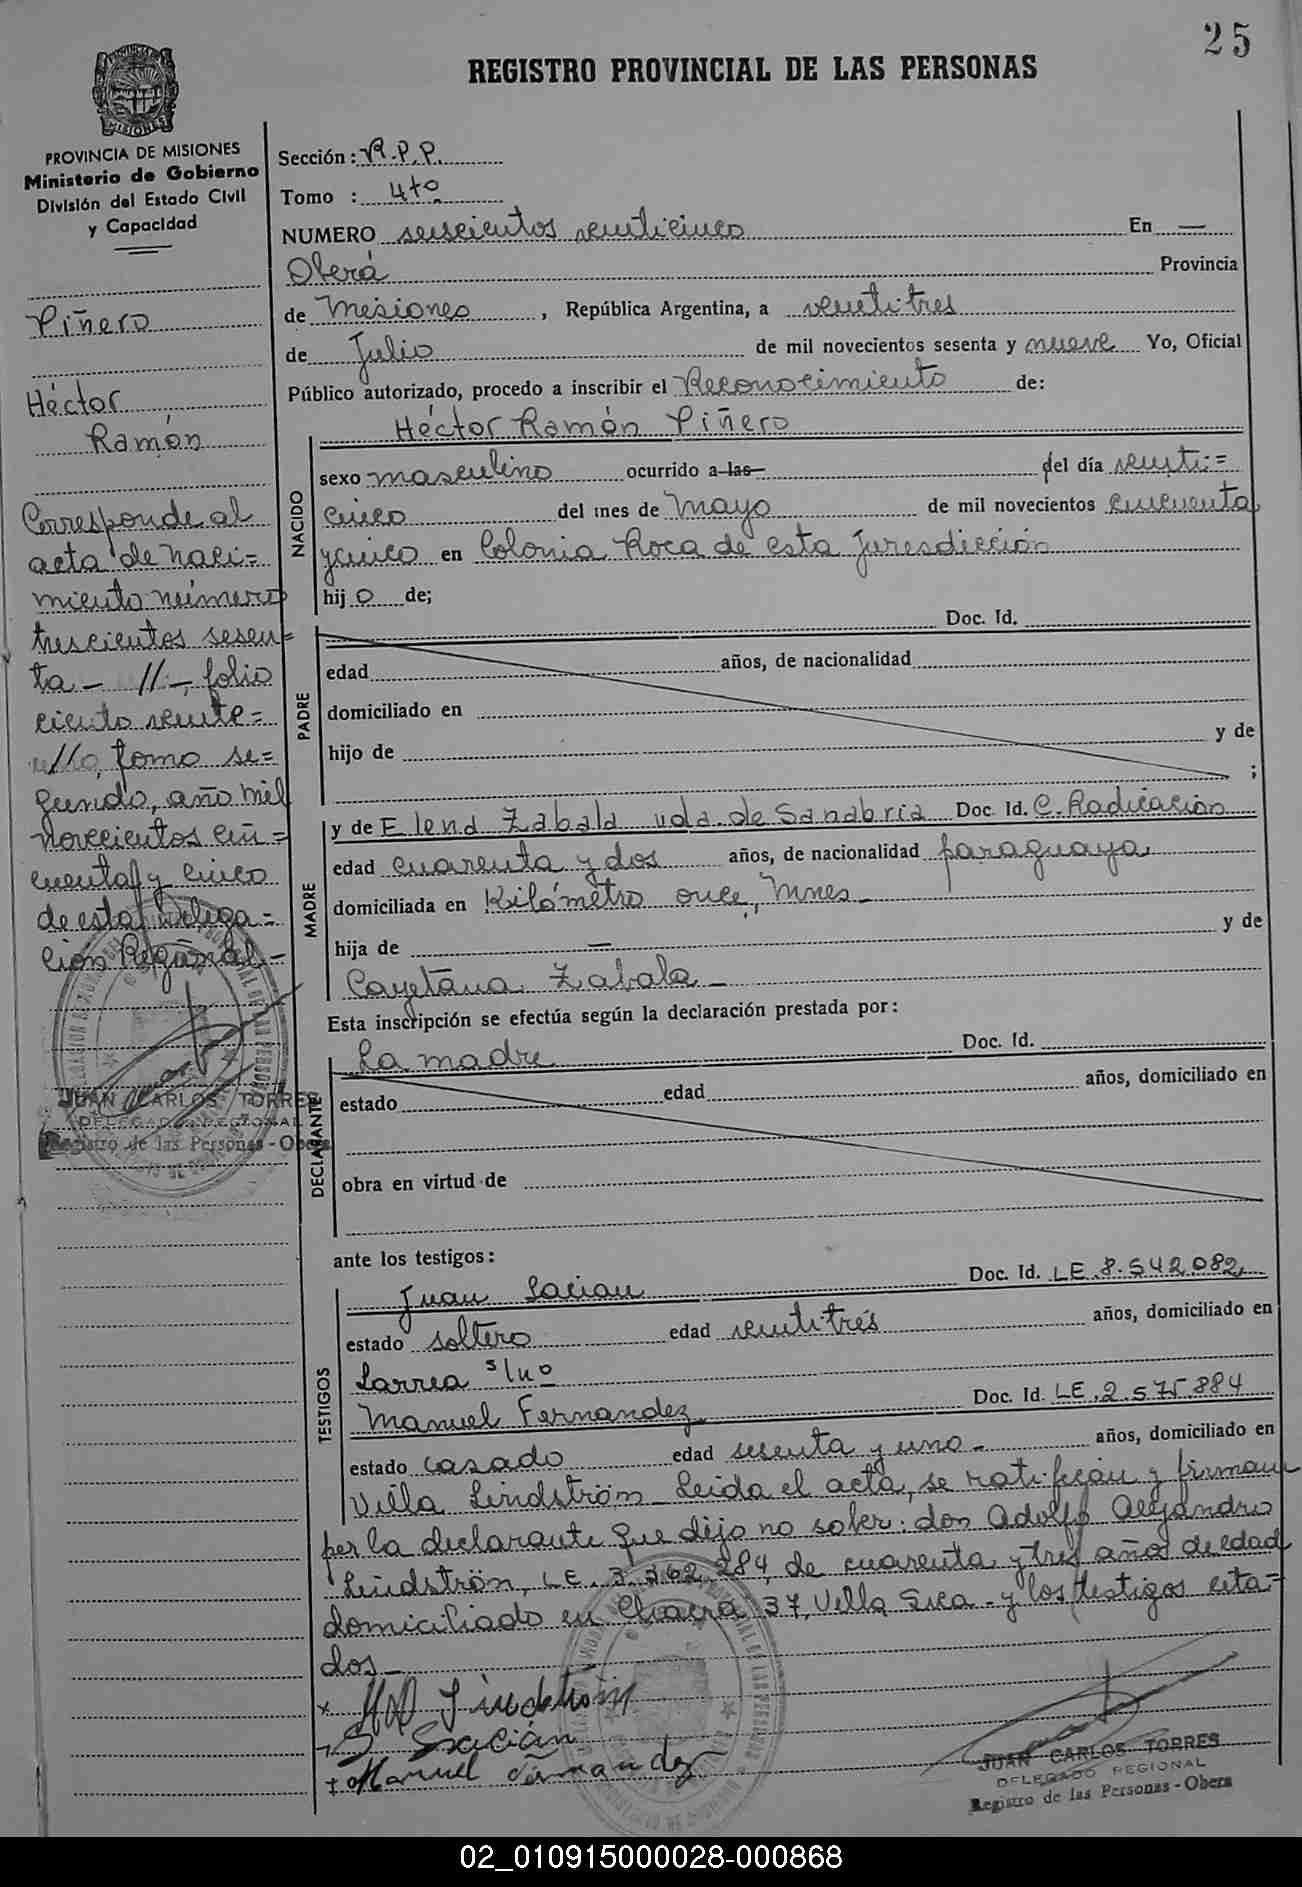 25
REGISTRO PROVINCIAL DE LAS PERSONAS
MISIONES
PROVINCIA DE MISIONES
Ministerio de Gobierno
División del Estado Civil
y Capacidad
Piñero
Héctor
Ramón
Corresponde al
acta de naci=
miento número
trescientos sesen=
ta - // -, folio
ciento veinte=
tomo se=
gundo, año mil
novecientos cin=
cuenta y cinco
de esta Delega=
ción Regional -
JUAN CARLOS TORRES
DELEGADO REGIONAL
Registro de las Personas - Oberá
Sección: R.P.P.
Tomo : 4to
NUMERO seiscientos veinticinco En —
Oberá Provincia
de Misiones, República Argentina, a veintitres
de Julio de mil novecientos sesenta y nueve Yo, Oficial
Público autorizado, procedo a inscribir el Reconocimiento de:
Héctor Ramón Piñero
NACIDO
sexo masculino ocurrido a las del día veinti=
cinco del mes de Mayo de mil novecientos cincuenta
y cinco en Colonia Roca de esta Jurisdicción
hij o de;
PADRE
Doc. Id.
edad años, de nacionalidad
domiciliado en
hijo de y de
;
MADRE
y de Elena Zabala vda. de Sanabria Doc. Id. C. Radicación
edad cuarenta y dos años, de nacionalidad paraguaya
domiciliada en Kilómetro once, Mnes -
hija de — y de
Cayetana Zabala -
Esta inscripción se efectúa según la declaración prestada por:
DECLARANTE
La madre Doc. Id.
estado edad años, domiciliado en
obra en virtud de
ante los testigos:
TESTIGOS
Juan Sacian Doc. Id. LE.8.542.082
estado soltero edad veintitrés años, domiciliado en
Larrea s/no
Manuel Fernandez Doc. Id. LE.2.575884
estado casado edad sesenta y uno - años, domiciliado en
Villa Lindström - Leida el acta, se ratifican y firman
por la declarante que dijo no saber: don Adolfo Alejandro
Lindström, LE.3.362.284, de cuarenta y tres años de edad
domiciliado en Chacra 37, Villa Svea - y los testigos cita=
dos -
x Lindström
J. Sacián
+ Manuel Fernandez
JUAN CARLOS TORRES
DELEGADO REGIONAL
Registro de las Personas - Oberá
02_010915000028-000868